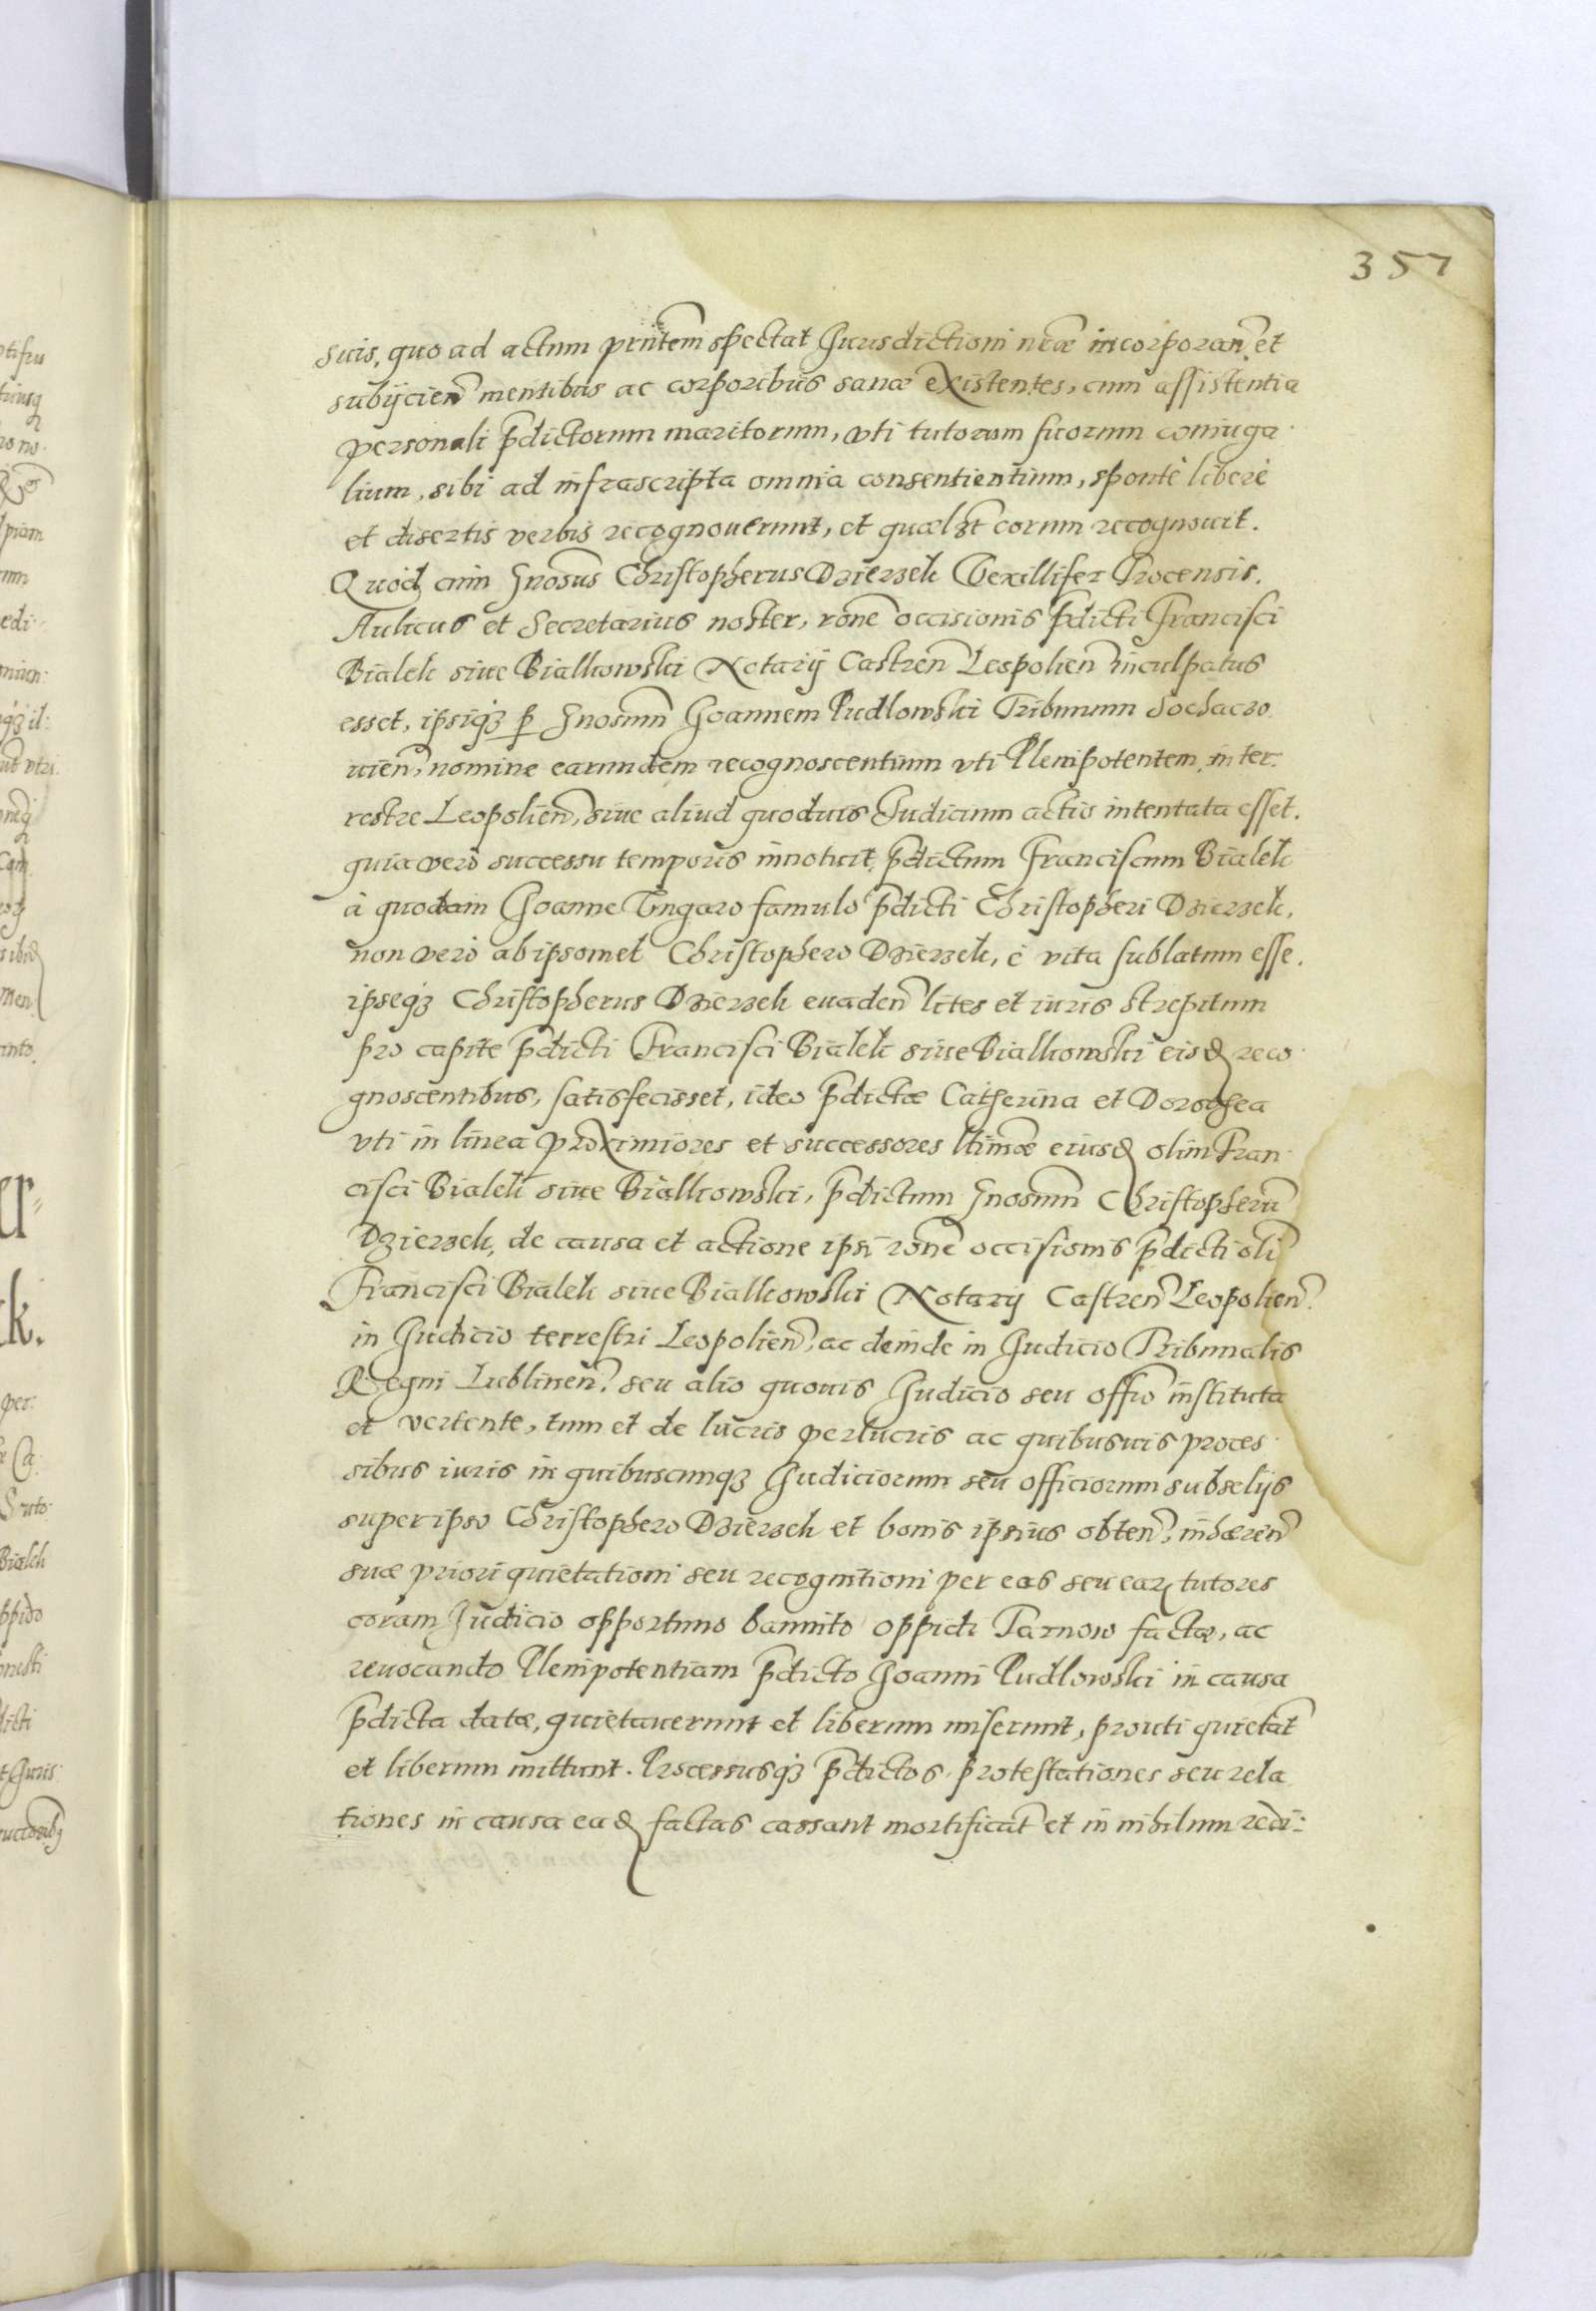 357
suis, quo ad actum pñtem spectat Jurisdictioni nrae incorporan̄ et
subijcien̄ mentibus ac corporibus sanae existentes, cum assistentia
personali p̄dictorum maritorum, vti tutorum suorum coniuga
lium, sibi ad infrascripta omnia consentientium, sponte libere
et disertis verbis recognouerunt, et quaelꝫt eorum recognouit.
Quodꝫ cum Gnosus Christopherus Dzierzek Vexillifer Trocensis.
Aulicus et Secretarius noster, rone occisionis p̄dicti Francisci
Bialek siue Bialkowski Notarij Castren̄ Leopolien̄ inculpatus
esset, ipsiqꝫ p̱ Gnosum Joannem Pudlowski Tribunum Sochaczo
uien̄, nomine earundem recognoscentium vti Plenipotentem, in ter
restre Leopolien̄, siue aliud quoduis Judicium actio intentata esset.
quia vero successu temporis innotuit, p̄dictum Franciscum Bialek
à quodam Joanne Vngaro famulo p̄dicti Christopheri Dzierzek,
non verò ab ipsomet Christophero Dzierzek, è vita sublatum esse.
ipseqꝫ Christopherus Dzierzek euaden̄ lites et iuris strepitum
pro capite p̄dicti Francisci Bialek siue Bialkowski eisd reco
gnoscentibus, satisfecisset, ideo p̄dictae Catherina et Dorothea
vti in linea proximiores et successores ltimae eiusd olim Fran
cisci Bialek siue Bialkowski, p̄dictum Gnosum Christopherū
Dzierzek, de causa et actione ipsi rone occisionis p̄dicti oli
Francisci Bialek siue Bialkowski Notarij Castren̄ Leopolien̄.
in Judicio terrestri Leopolien̄, ac deinde in Judicio Tribunalis
Regni Lublinen̄. seu alio quouis Judicio seu offio instituta
et vertente, tum et de lucris perlucris ac quibusuis proces
sibus iuris in quibuscunqꝫ Judiciorum seu officiorum subselijs
super ipso Christophero Dzierzek et bonis ipsius obten̄, inhaeren̄
suae priori quietationi seu recognitioni per eas seu earꝝ tutores
coram Judicio opportuno bannito oppidi Tarnow factae, ac
reuocando Plenipotentiam p̄dicto Joanni Pudlowski in causa
p̄dicta datae, quietauerunt et liberum miserunt, prouti quietāt
et liberum mittunt. Processusqꝫ p̄dictos protestationes seu rela
tiones in causa ead factas cassant mortificāt et in nihilum redi: